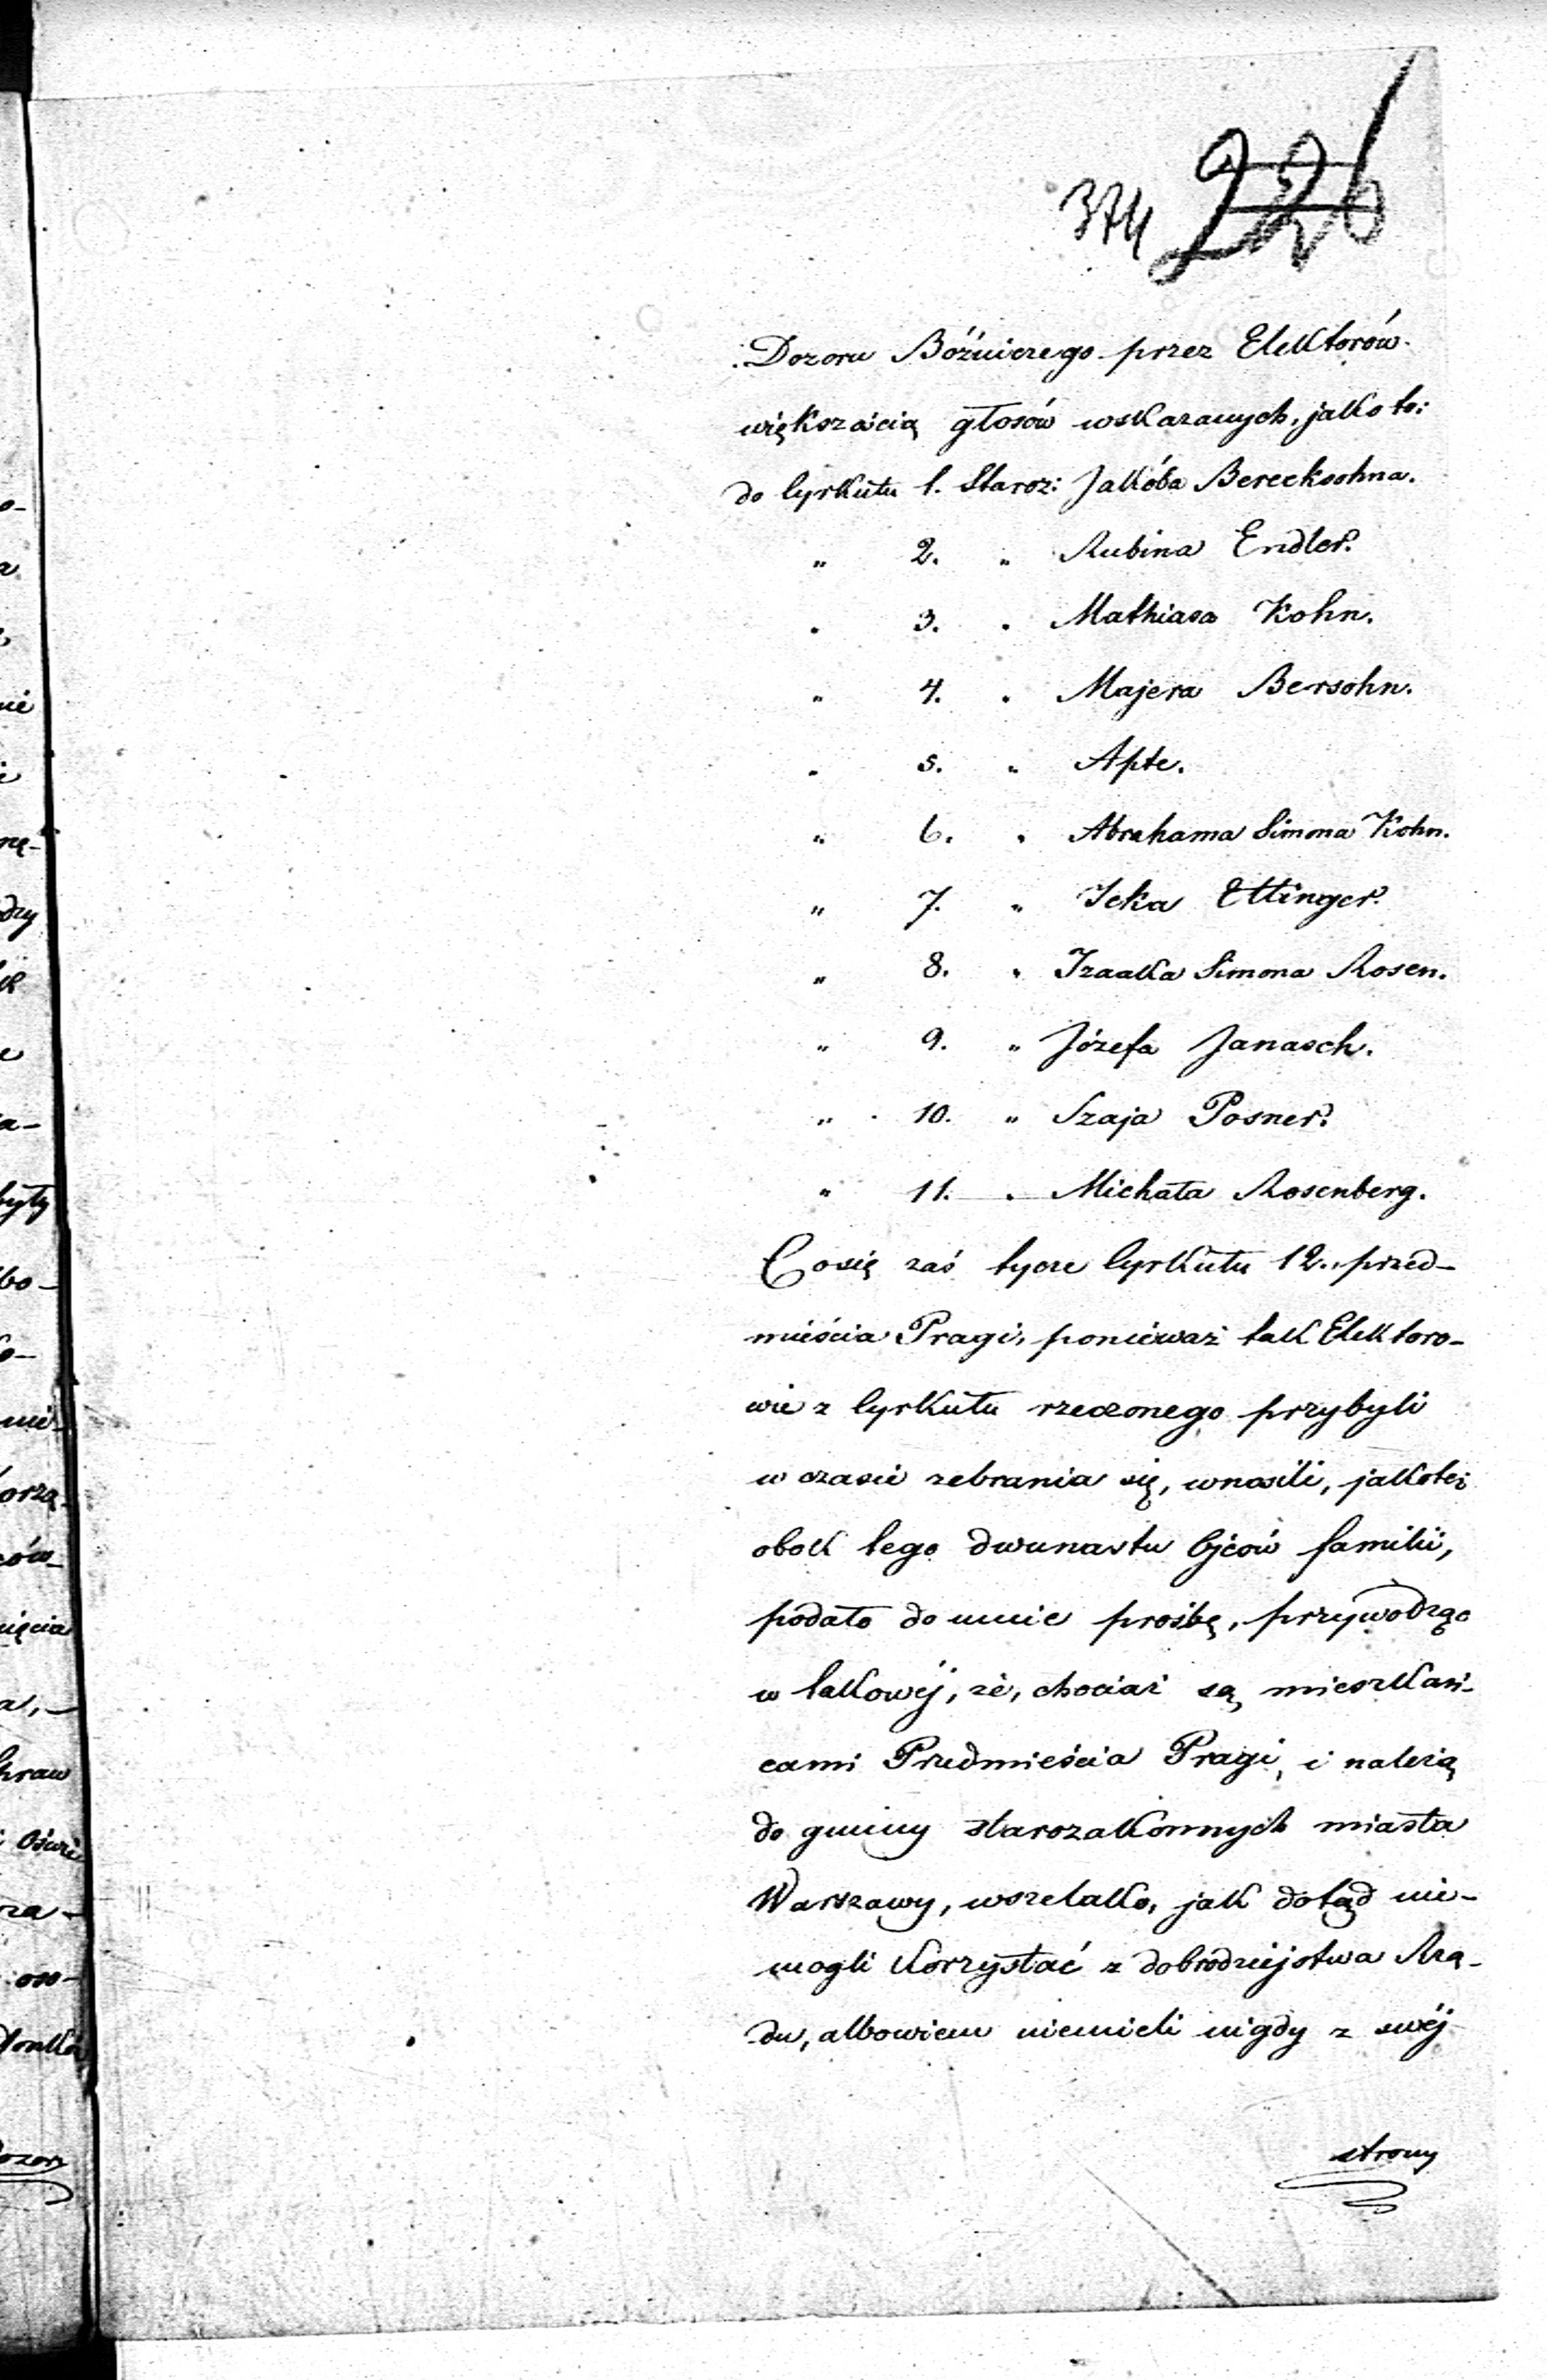 374 226
Dozoru Bóżniczego przez Elektorów
większością głosów wskazanych, jako to:
do Cyrkułu 1. Staroz: Jakóba Berecksohna.
" 2. " Rubina Endler.
" 3. " Mathiasa Kohn.
" 4. " Majera Bersohn.
" 5. " Apte.
" 6. " Abrahama Simona Kohn.
" 7. " Icka Ettinger.
" 8. " Izaaka Simona Rosen.
" 9. " Józefa Janasch.
" 10. " Szaja Posner.
" 11. " Michała Rosenberg.
Co się zaś tycze Cyrkułu 12., przed-
mieścia Pragi, ponieważ tak Elektoro-
wie z Cyrkułu rzeczonego przybyli
w czasie zebrania się, wnosili, jakoteż
obok tego dwunastu Ojców familii,
podało do mnie prośbę, przywodząc
w takowéj, że, chociaż są mieszkań-
cami Przedmieścia Pragi, i należą
do gminy starozakonnych miasta
Warszawy, wszelako, jak dotąd nie-
mogli korzystać z dobrodziejstwa Rzą-
du, albowiem niemieli nigdy z swéj
strony